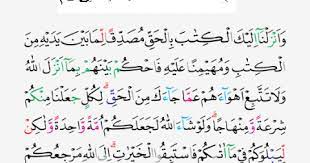 وَاَنْزَلْنَآ اِلَيْكَ الْكِتٰبَ بِالْحَقِّ مُصَدِّقًا لِّمَا بَيْنَ يَدَيْهِ مِنَ
الْكِتٰبِ وَمُهَيْمِنًا عَلَيْهِ فَاحْكُمْ بَيْنَهُمْ بِمَآ اَنْزَلَ اللّٰهُ
وَلَا تَتَّبِعْ اَهْوَاۤءَهُمْ عَمَّا جَاۤءَكَ مِنَ الْحَقِّۗ لِكُلٍّ جَعَلْنَا مِنْكُمْ
شِرْعَةً وَّمِنْهَاجًاۗ وَلَوْ شَاۤءَ اللّٰهُ لَجَعَلَكُمْ اُمَّةً وَّاحِدَةً وَّلٰكِنْ
لِّيَبْلُوَكُمْ فِيْ مَآ اٰتٰىكُمْ فَاسْتَبِقُوا الْخَيْرٰتِۗ اِلَى اللّٰهِ مَرْجِعُكُمْ